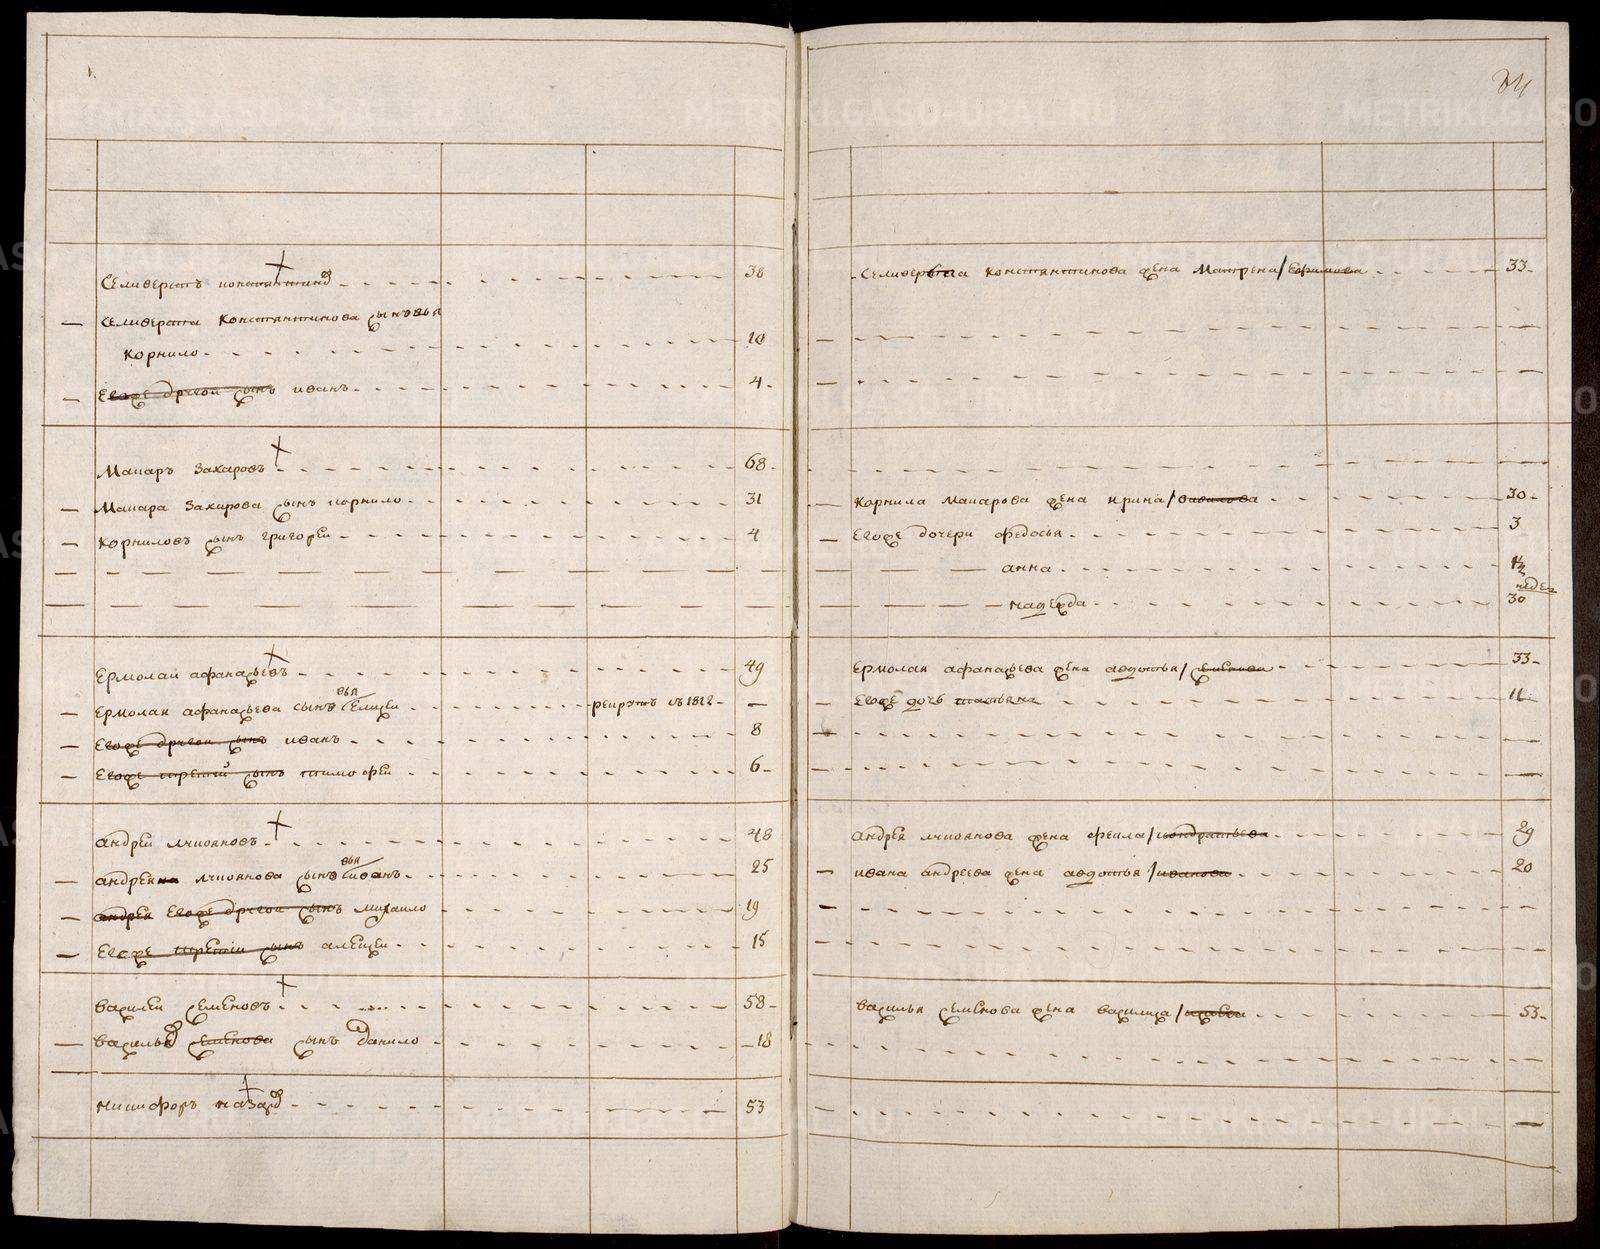 34
Селиверстъ константинов 38
Селиверста Константинова сыновья
Корнило 10
Егоже другой сынъ иванъ 4
Макаръ Захаровъ 68
Макара Захарова сынъ корнило 31
Корниловъ сынъ григорей 4
Ермолай афанасьевъ 49
Ермолая афанасьева сынъ вья Елисей рекрутъ съ 1812
Егоже другой сынъ иванъ 8
Егоже третий сынъ тимофей 6
андрей лукояновъ 48
андрея лукоянова сынъ вья иванъ 25
андрея Егоже другой сынъ михаило 19
Егоже третий сынъ алексей 15
василей семеновъ 58
василья семенова сынъ данило 18
никифоръ назаров 53
Селиверста константинова жена Матрена / Ефимова 33
Корнила Макарова жена ирина / вавилова 30
Егоже дочери федосья 3
анна
недел
надежда 30
Ермолая афанасьева жена авдотья / семенова 33
Егоже дочь татьяна 11
андрея лукоянова жена фекла / кондратьева 29
ивана андреева жена авдотья / иванова 20
василья семенова жена василиса 53
METRIKI.GASO-URAL.RU